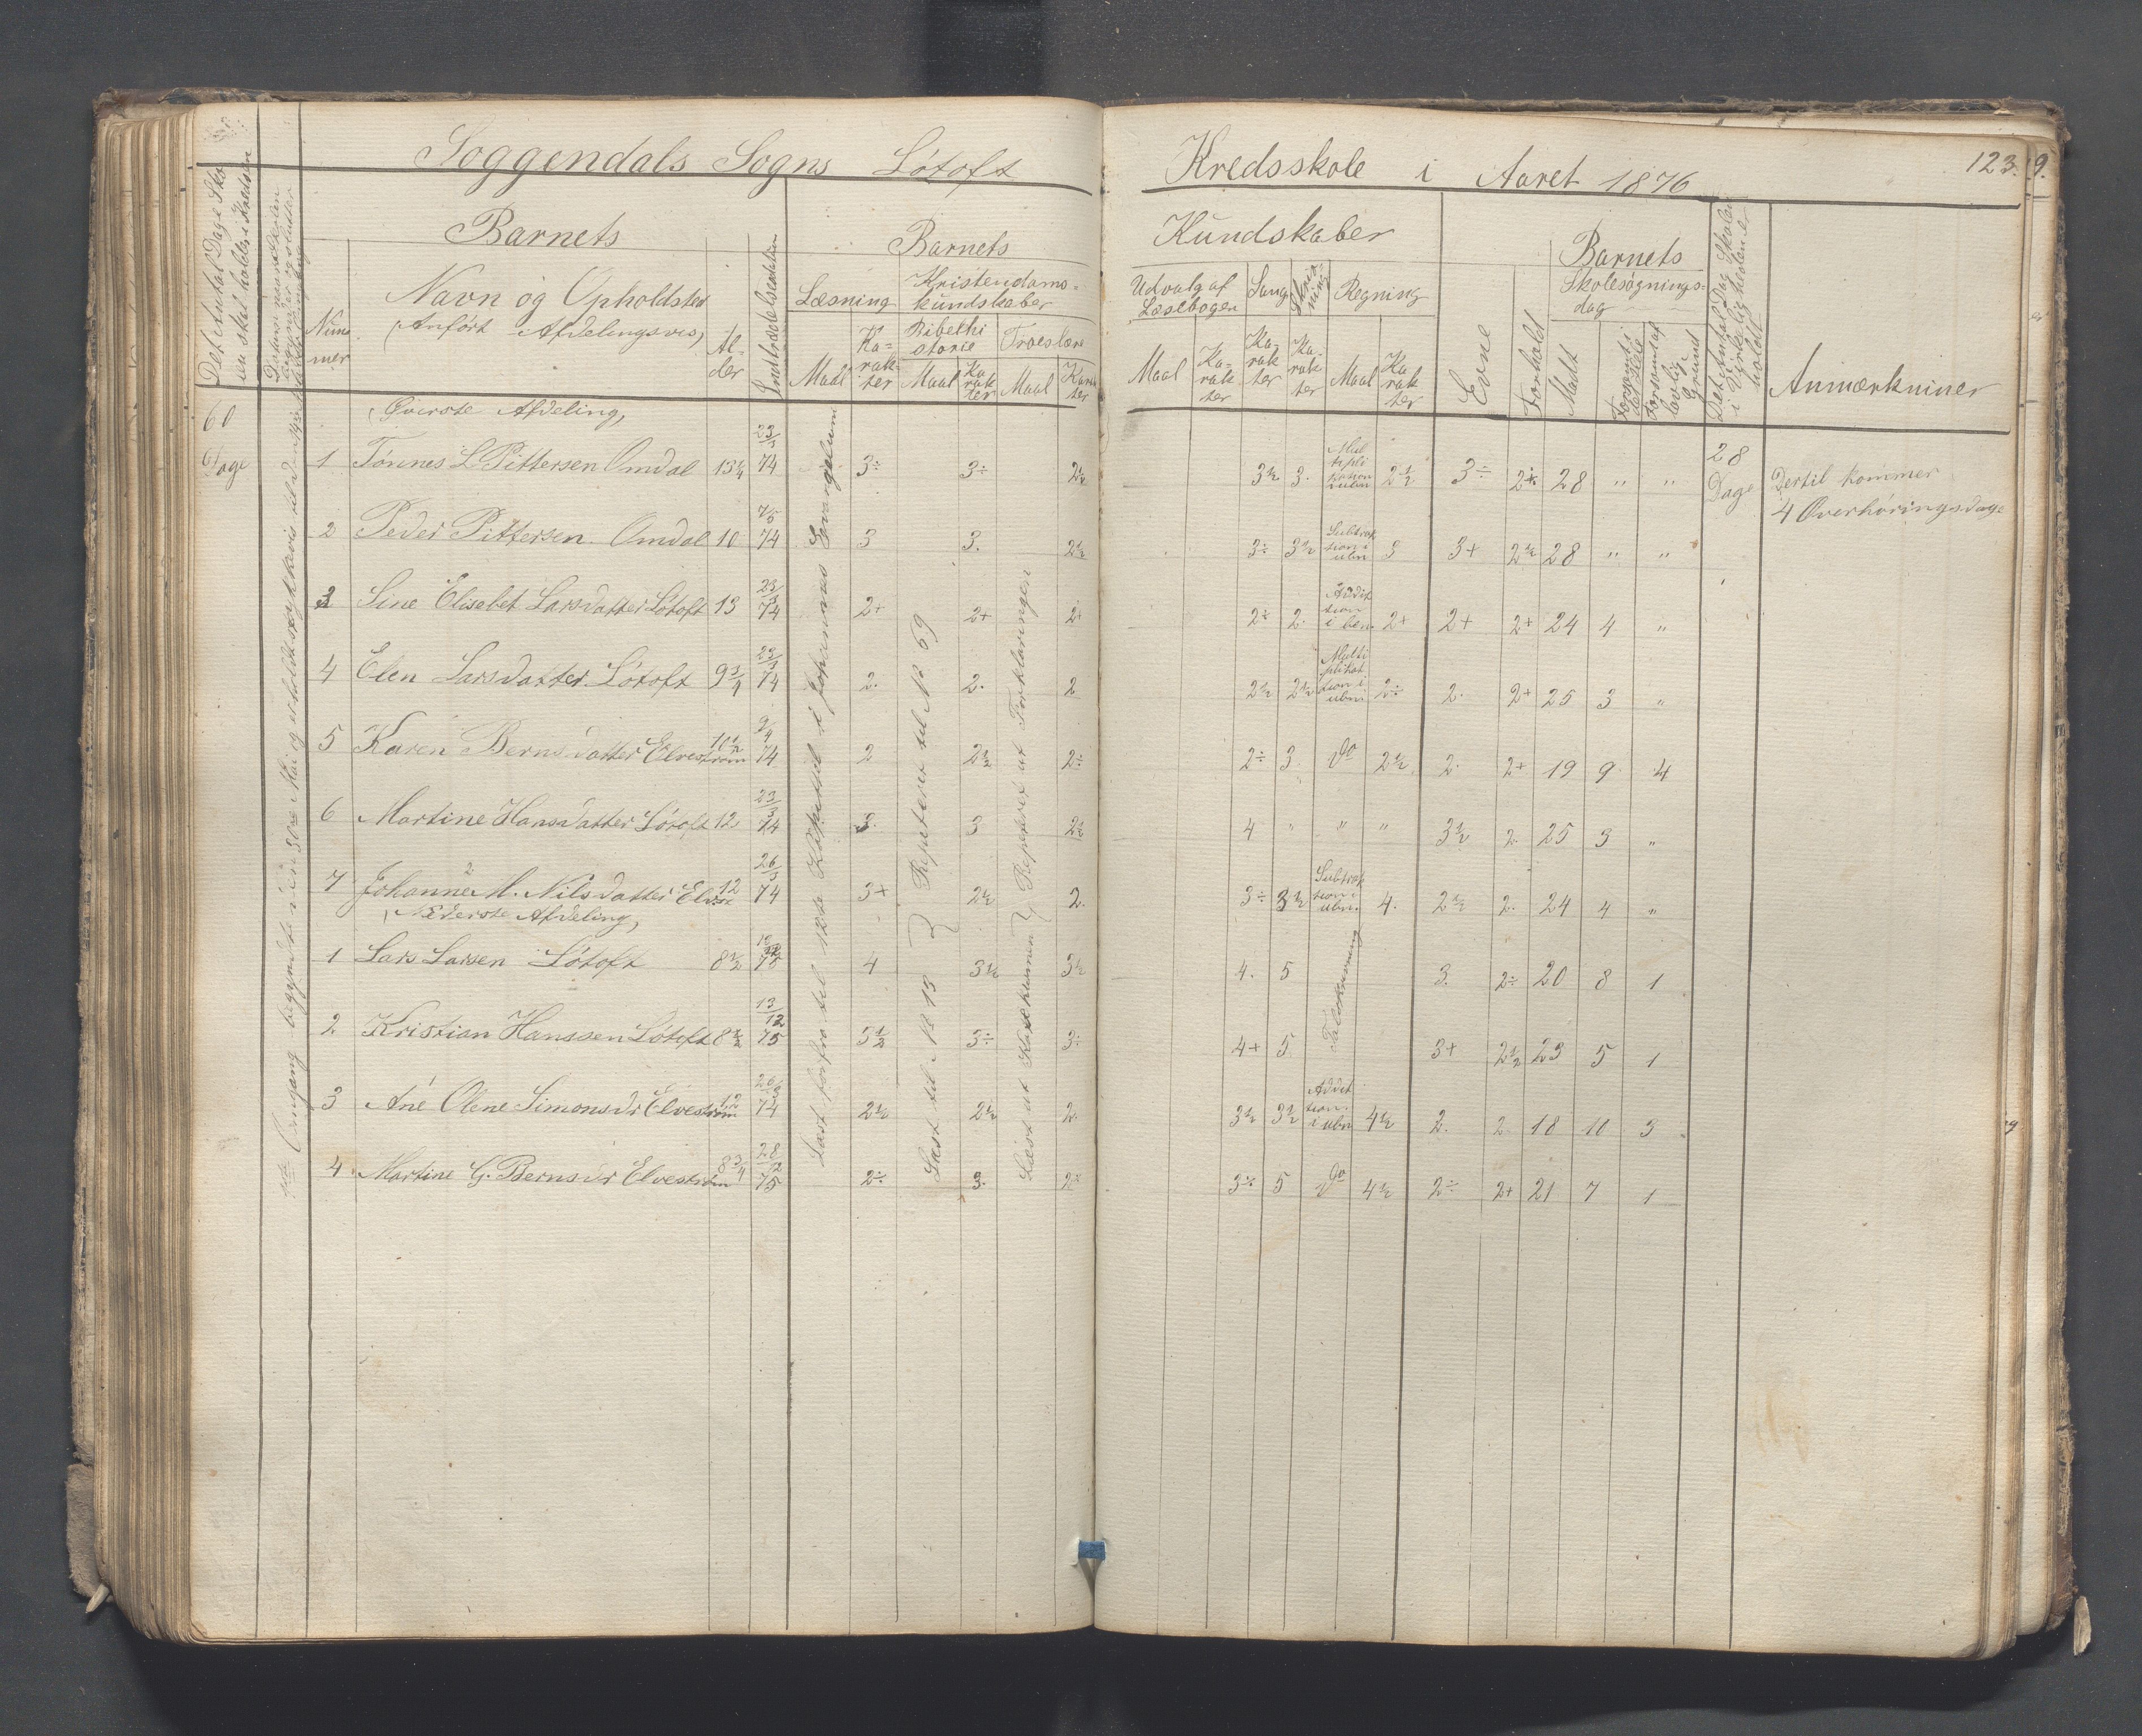 Soggendals Sogns Lótoft Kredsskole i Aaret 1876 123.
Det Antal Dage Sko-
len skal holdes i Kredsen
Num
mer
Barnets
Navn og Opholdsted
(Anført Afdelingsvis)
Al-
der
Indtrædelsesdatum
Barnets Kundskaber
Læsning
Maal
Ka-
rak-
ter
Kristendoms-
kundskaber
Bibelhi
storie
Maal
Ka
rak
ter
Troeslære
Maal
Karak
ter
Udvalg af
Læsebogen
Maal
Ka-
rak
ter
Sang
Ka-
rak
ter
Skriv-
ning
Ka-
rak
ter
Regning
Maal
Ka
rak
ter
Evne
Forhold
Barnets
Skolesøgnings-
dag
Mødt
Forsømt i
det Hele
Forsømt af
lovlig
Grund
Det Antal Dag Skolen
i Virkeligheden e
holdt
Anmærkniner
60
Dage
(Øverste Afdeling)
1 Tónnes L Pittersen Omdal 13¼ 23/3 74 3÷ 3÷ 2½ 3½ 3. Mul tipli kation i ubn 2½ 3÷ 2+ 28 " " 28 Dage Dertil kommer
4 Overhøringsdage
2 Peder Pittersen Omdal 10 7/5 74 3 3. 2½ 3÷ 3½ Subtrak tion i ubn 3 3+ 2½ 28 " "
3 Sine Elisebet Larsdatter Lótoft 13 23/3 74 2+ 2+ 2+ 2÷ 2. Addit tion i ben. 2+ 2+ 2+ 24 4 "
4 Elen Larsdatter Lótoft 9¾ 23/3 74 2. 2. 2 2½ 2½ Multi plikat tion i ubn 2÷ 2. 2+ 25 3 "
5 Karen Bernsdatter Elvestrøm 10½ 9/4 74 2 2½ 2÷ 2÷ 3 do 2½ 2. 2+ 19 9 4
6 Martine Hansdatter Lótoft 12 23/3 74 3. 3 2½ 4 " " " 3½ 2. 25 3 "
7 Johanne M. Nilsdatter Elvst 12 26/3 74 3+ 2½ 2. 3÷ 3½ Subtrak tion i ubn. 4. 2½ 2. 24 4 "
(Nederste Afdeling)
1 Lars Larsen Lótoft 8½ 75 4 3½ 3½ 4. 5 3. 2÷ 20 8 1
2 Kristian Hanssen Lótoft 8½ 13/12 75 3½ 3÷ 3÷ 4+ 5 3+ 2½ 23 5 1
3 Ane Olene Simonsdr Elvestrøm 12 26/3 74 2½ 2½ 2. 3½ 3½ Addit tion i ubn 4½ 2. 2 18 10 3
4 Martine G. Bernsdr Elvestrøm 8¾ 28/12 75 2÷ 3. 2÷ 3÷ 5 do 4½ 2÷ 2+ 21 7 1
Læst forfra til 18de Kapittel i Johannes Evangelium
Læst til No 13 } Repeteret til No 69
Læst ut Katekismen } Repeteret ut Forklaringen
Talskrivning